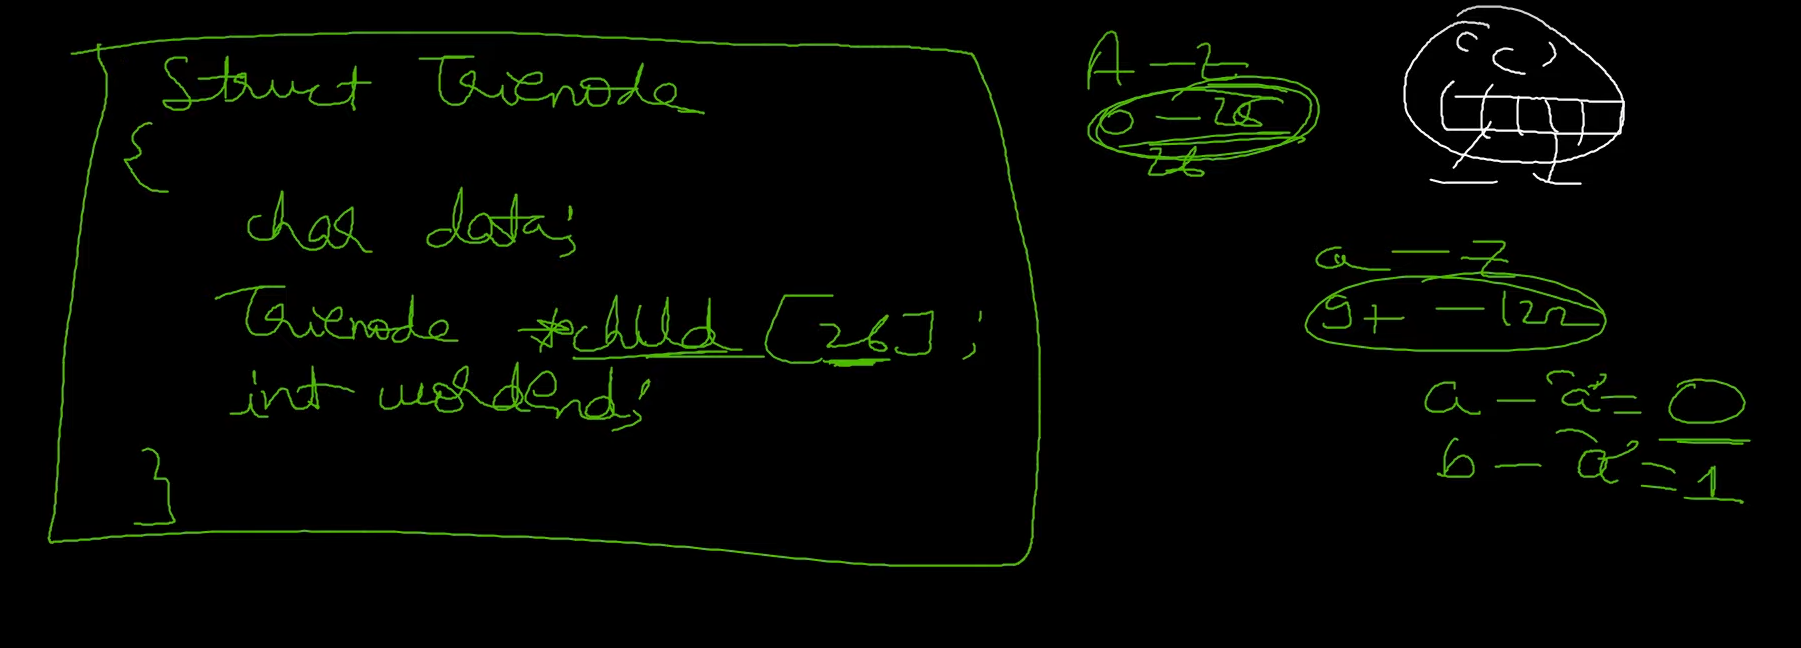 Struct Trienode
{
char data;
Trienode *child [26];
int wordEnd;
}
A - Z
0 - 25
26
c c )
a - z
97 - 122
a - 'a' = 0
b - 'a' = 1